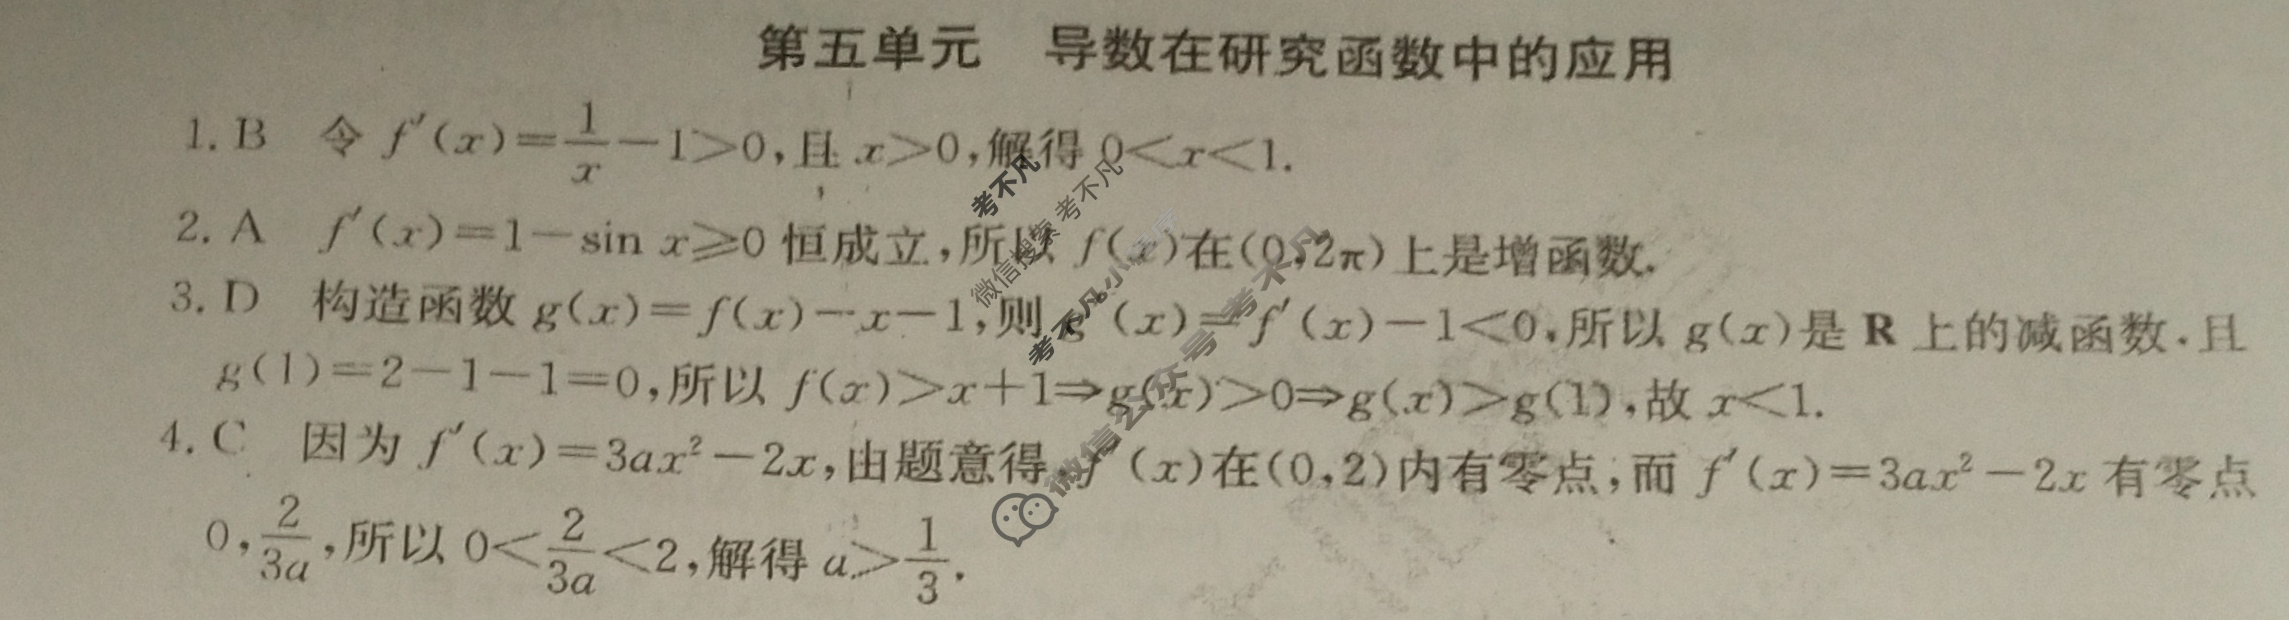 第五单元 导数在研究函数中的应用
1. B 令 f′(x)=1/x-1>0,且 x>0,解得 0<x<1.
2. A f′(x)=1-sin x≥0 恒成立,所以 f(x)在(0,2π)上是增函数.
3. D 构造函数 g(x)=f(x)-x-1,则 g′(x)=f′(x)-1<0,所以 g(x)是 R 上的减函数.且
g(1)=2-1-1=0,所以 f(x)>x+1⇒g(x)>0⇒g(x)>g(1),故 x<1.
4. C 因为 f′(x)=3ax²-2x,由题意得 f′(x)在(0,2)内有零点,而 f′(x)=3ax²-2x 有零点
0,2/3a,所以 0<2/3a<2,解得 a>1/3.
考不凡
微信搜索 考不凡
考不凡小
微信公众号 考不凡